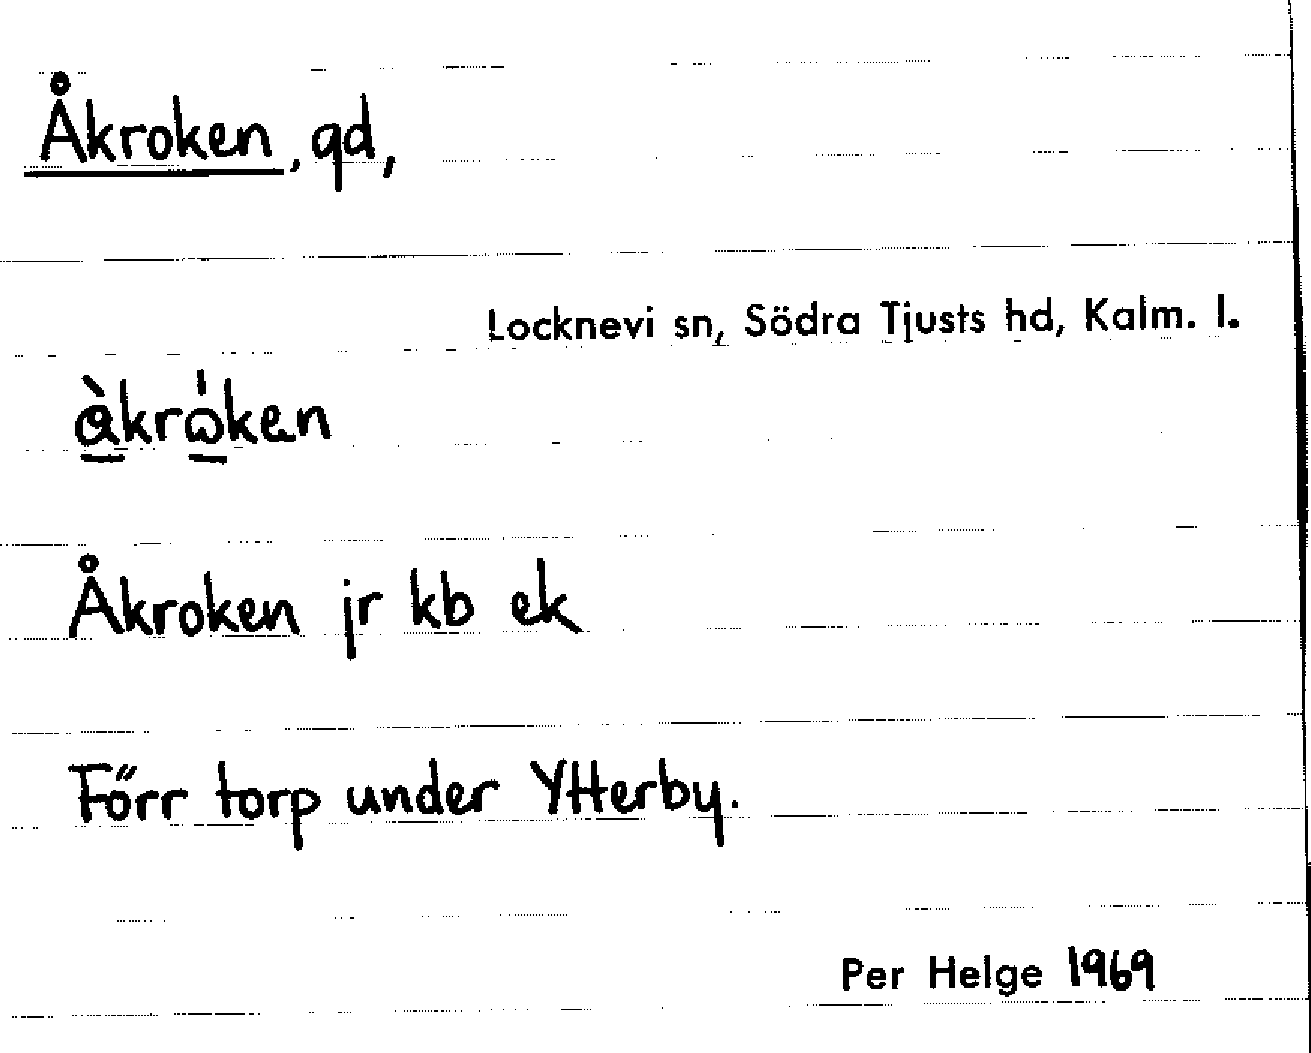 Åkroken, gd,
Locknevi sn, Södra Tjusts hd, Kalm. l.
Åkroken jr kb ek
Förr torp under Ytterby.
Per Helge 1969